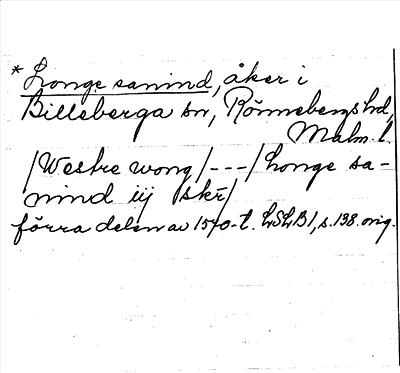 * Longe sanind, åker i
Billeberga sn, Rönnebergs hd,
Malm. l.
/Westre wong/---/Longe sa-
nind iij skr̄/
förra delen av 1570-t. LSLB1, s. 138. orig.